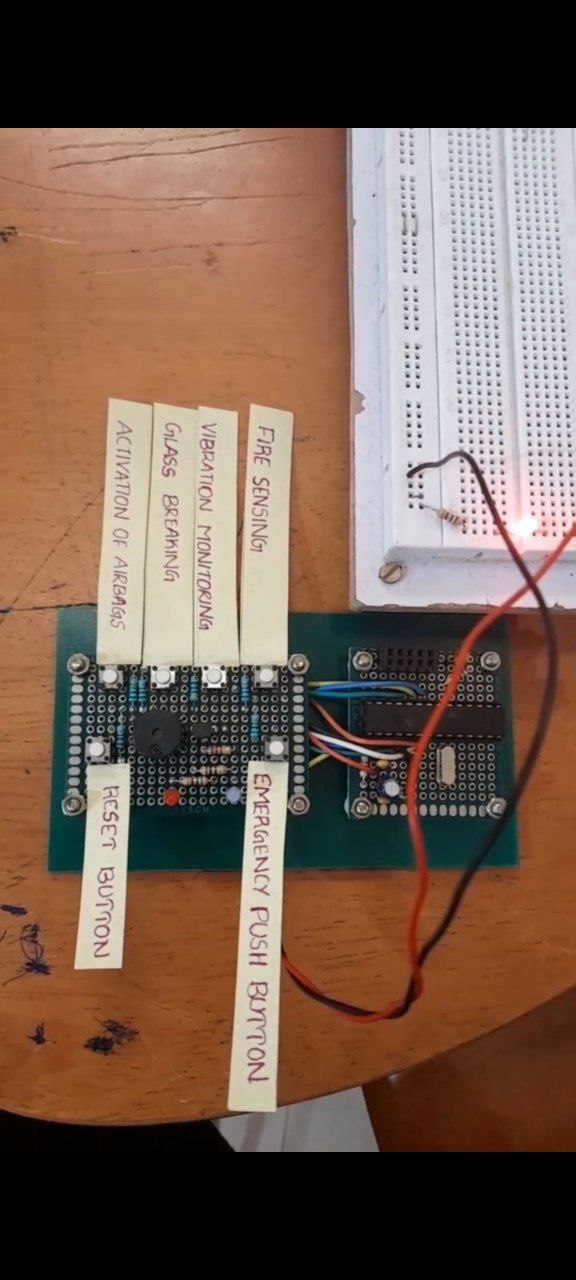 ACTIVATION OF AIRBAGS
GLASS BREAKING
VIBRATION MONITORING
FIRE SENSING
RESET BUTTON
EMERGENCY PUSH BUTTON